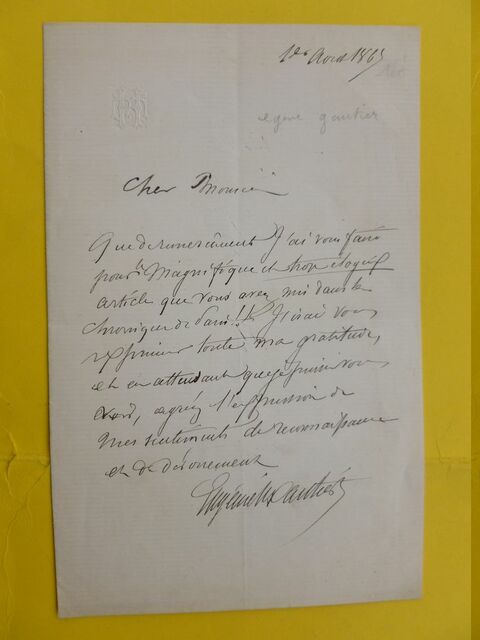 1er Août 1865
egène gautier
Cher Monsieur
Que de remerciements J'ai vous faire
pour ce Magnifique et trop élogieux
article que vous avez mis dans la
chronique de Paris!! J'irai vous
exprimer toute ma gratitude,
et en attendant que je puisse vous
agréez l'expression de
mes sentiments de reconnaissance
et de dévouement
Eugène Gautier